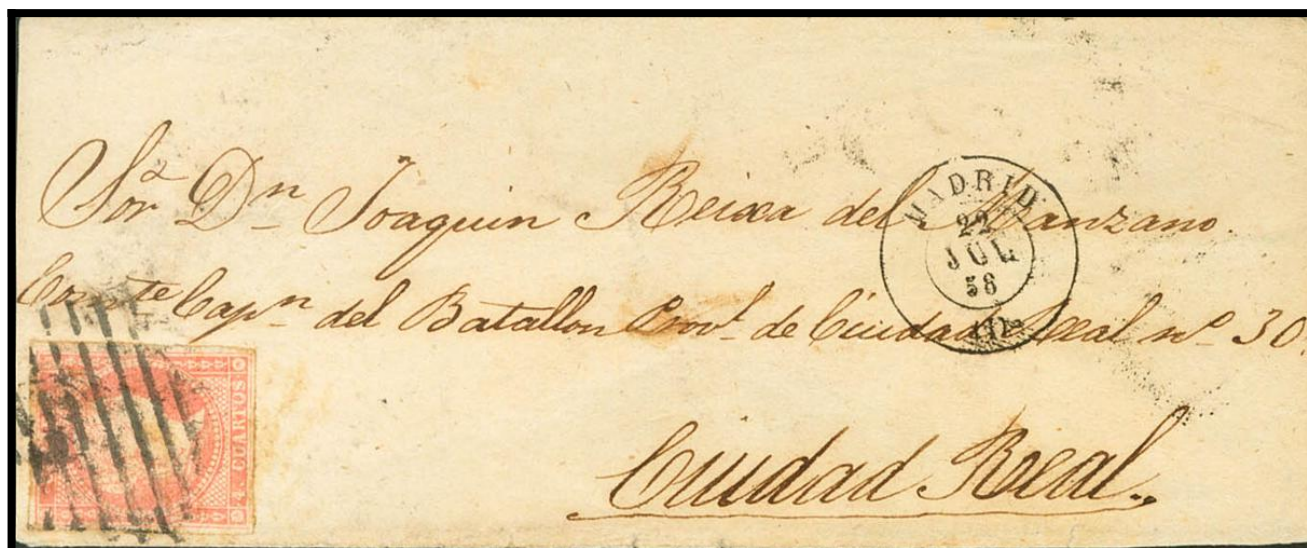 Sor. Dn Joaquin Reixa del Manzano.
Capn. del Batallon Provl. de Ciudad Real nº 30.
Ciudad Real.
MADRID
22
JUL
58
4. CUARTOS